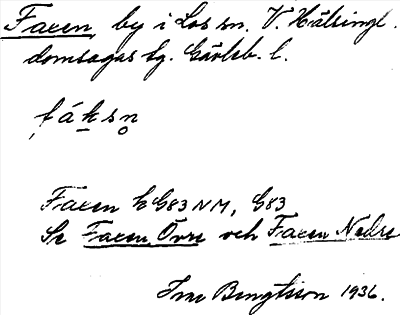 Faxen by i Los sn. V. Hälsingl.
domsagas tg. Gävleb. l.
fáksn
Faxen G83 NM, G83
Se Faxen, Övre och Faxen Nedre
Ivar Bengtsson 1936.